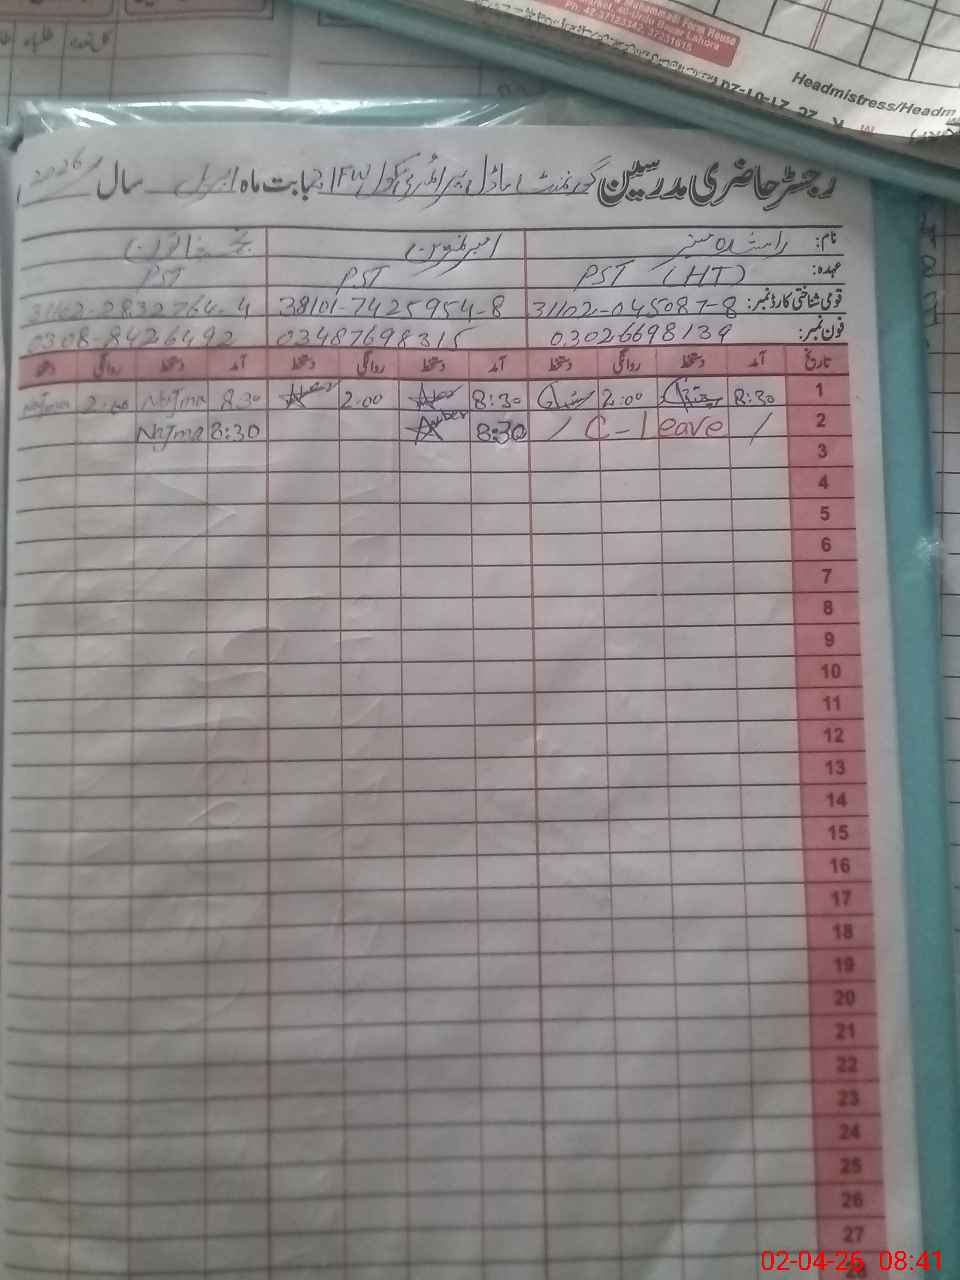 Muhammadi Form House
Market, 40-Urdu Bazar Lahore
Ph: 42-37123342, 37231615
Headmistress/Headm
رجسٹر حاضری مدرسین گورنمنٹ ماڈل پرائمری سکول 12FW بابت ماہ اپریل سال 2026
نام: راشدہ
عہدہ: PST (HT) PST PST
قومی شناختی کارڈ نمبر: 31102-045087-8 38101-7425954-8 31102-2832764-4
فون نمبر: 03026698139 03487698315 0308-8426492
تاریخ آمد دستخط روانگی دستخط آمد دستخط روانگی دستخط آمد دستخط روانگی دستخط
1 8:30 2:00 8:30 2.00 8.30 Najma 2.00 Najma
2 / C-Leave / 8:30 Amber 8:30 Najma
3
4
5
6
7
8
9
10
11
12
13
14
15
16
17
18
19
20
21
22
23
24
25
26
27
02-04-26 08:41